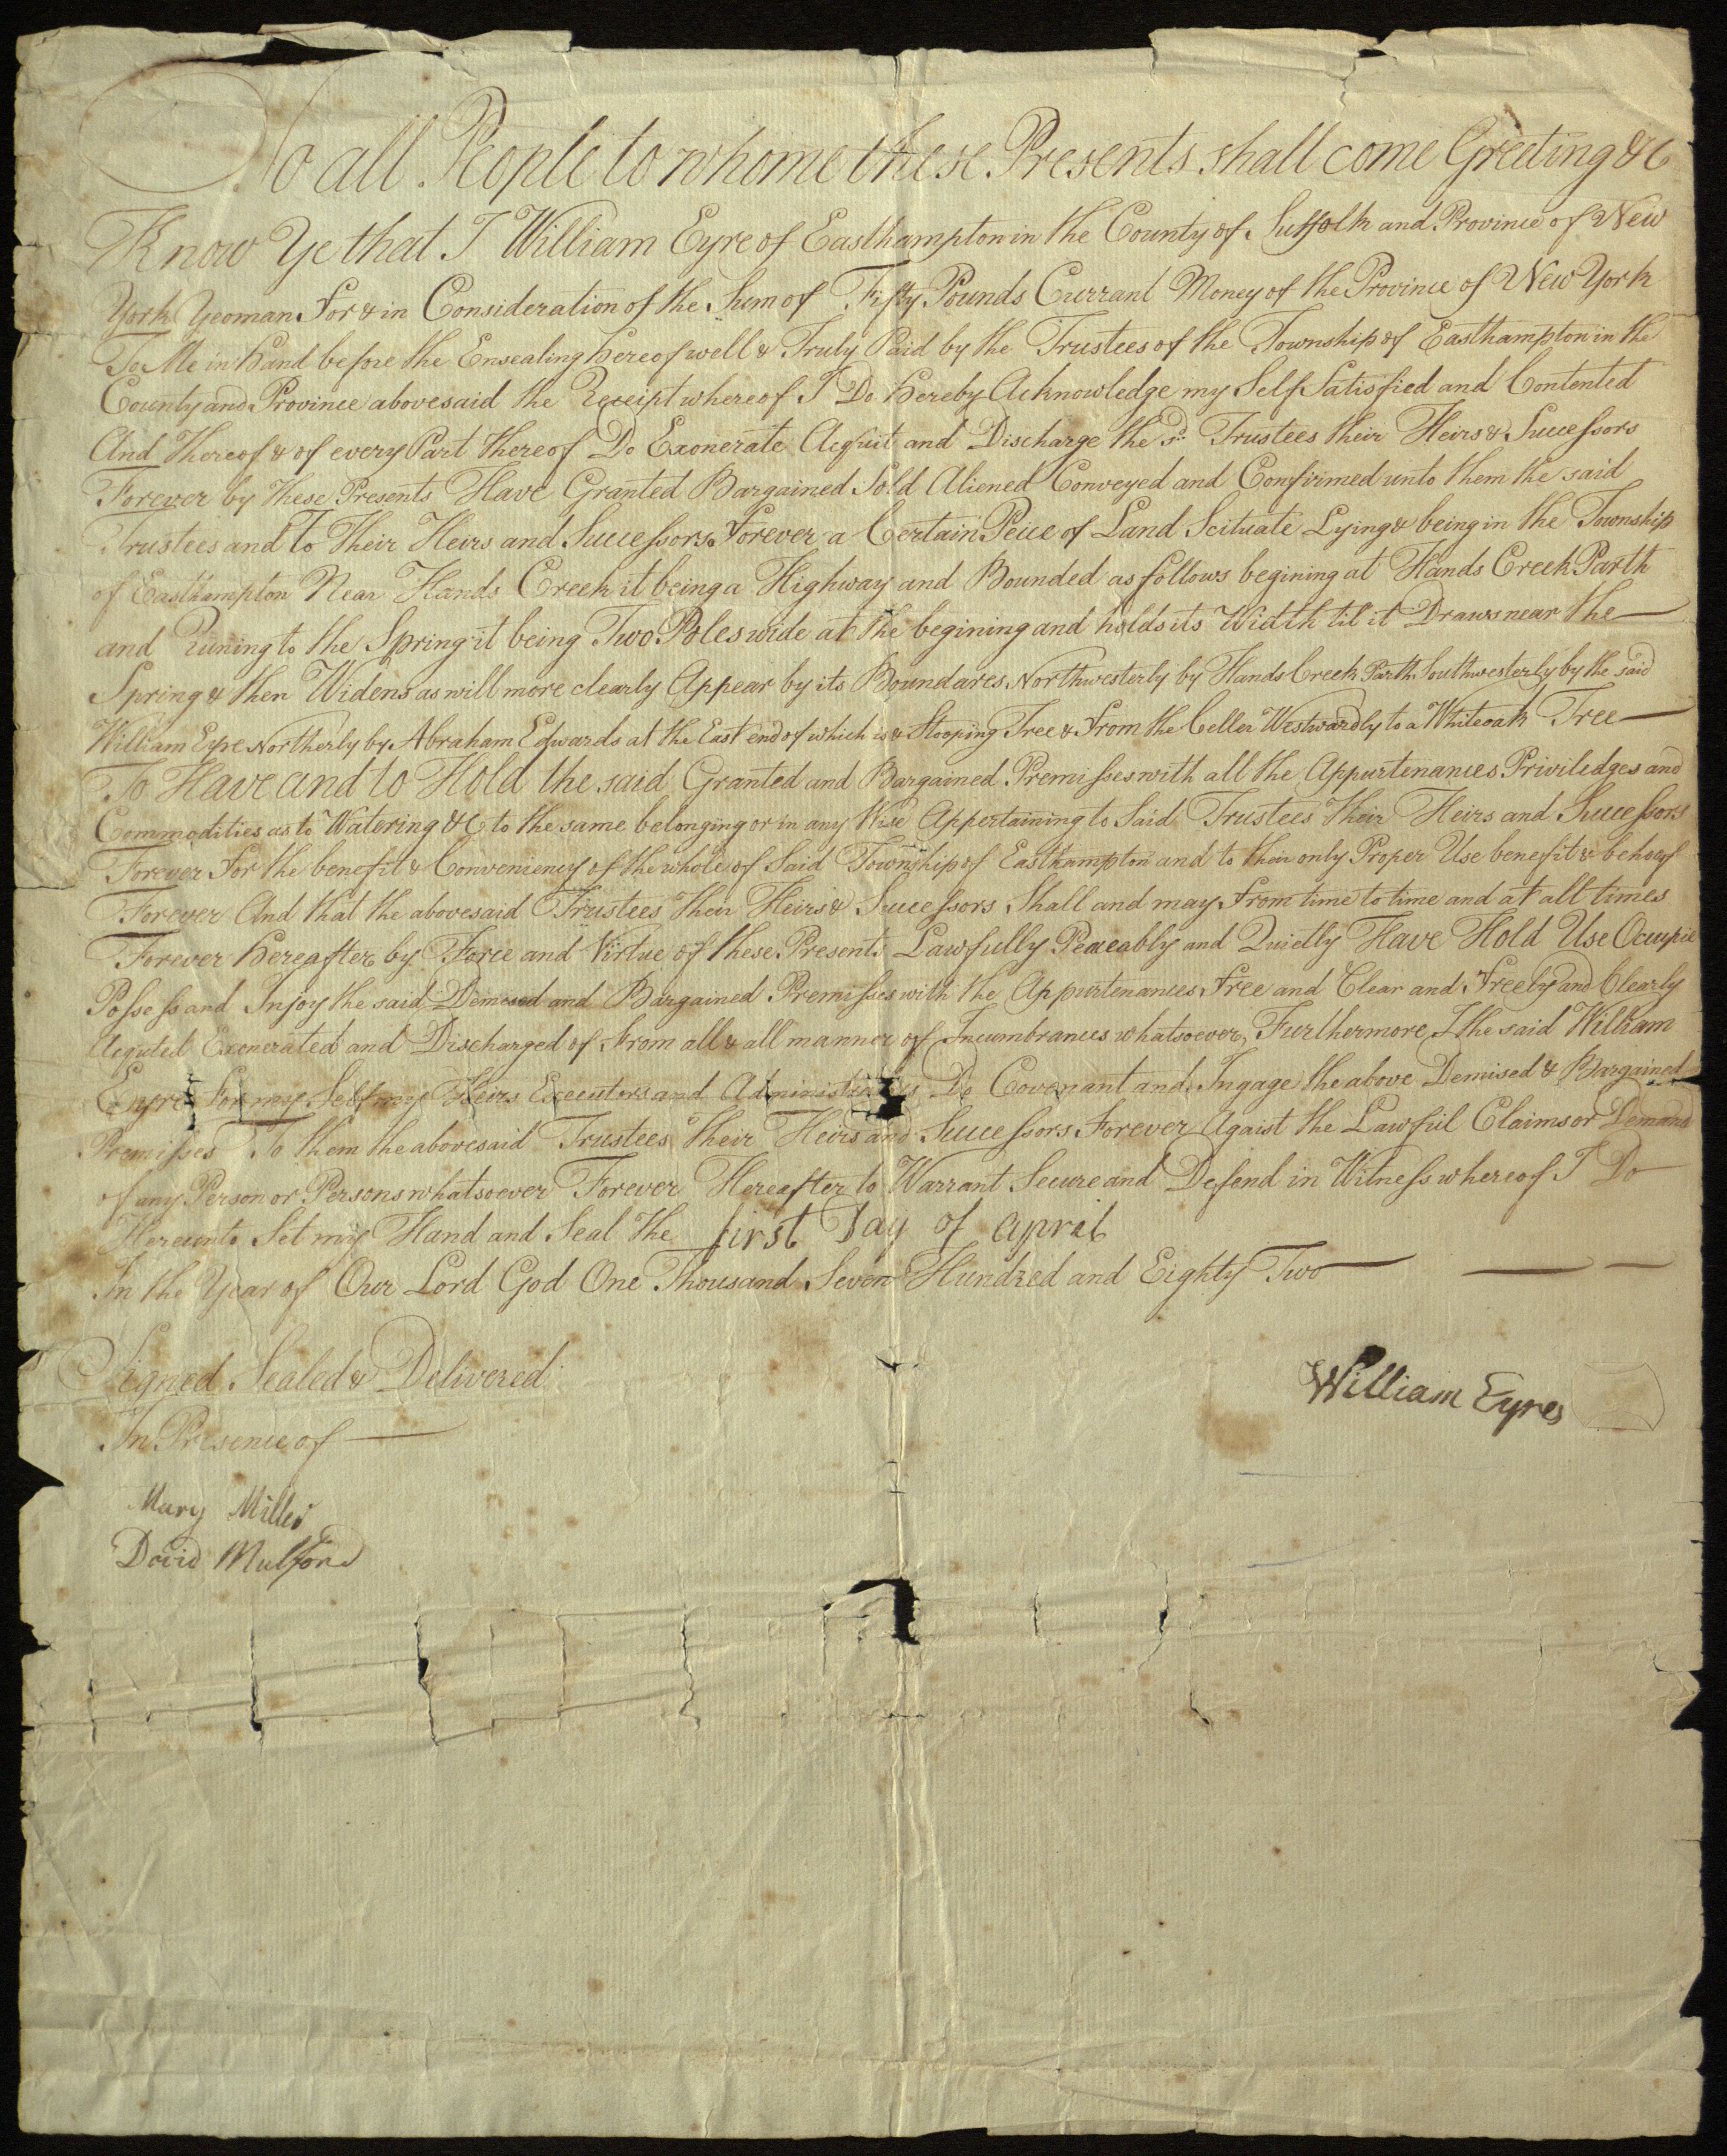 To all People to whome these Presents shall come Greeting &C
Know Ye that I William Eyre of Easthampton in the County of Suffolk and Province of New
York Yeoman For & in Consideration of the Sum of Fifty Pounds Currant Money of the Province of New York
To Me in Hand before the Ensealing hereof well & Truly Paid by the Trustees of the Township of Easthampton in the
County and Province abovesaid the Receipt whereof I Do hereby Acknowledge my Self Satisfied and Contented
And Thereof & of every Part thereof Do Exonerate Acquit and Discharge the sd. Trustees their Heirs & Successors
Forever by these Presents Have Granted Bargained Sold Aliened Conveyed and Confirmed unto them the said
Trustees and to Their Heirs and Successors Forever a Certain Peice of Land Scituate Lying & being in the Township
of Easthampton Near Hands Creek it being a Highway and Bounded as follows begining at Hands Creek Parth
and Runing to the Spring it being Two Poles wide at the begining and holds its Width til it Draws near the
Spring & then Widens as will more clearly Appear by its Boundares Northwesterly by Hands Creek Parth Southwesterly by the said
William Eyre Northerly by Abraham Edwards at the East end of which is a Stooping Tree & From the Celler Westwardly to a Whiteoak Tree
To Have and to Hold the said Granted and Bargained Premisses with all the Appurtenances Priviledges and
Commodities as to Watering &C to the same belonging or in any Wise Appertaining to Said Trustees Their Heirs and Successors
Forever For the benefit & Conveniency of the whole of Said Township of Easthampton and to their only Proper Use benefit & behoof
Forever And that the abovesaid Trustees their Heirs & Successors Shall and may From time to time and at all times
Forever hereafter by Force and Virtue of these Presents Lawfully Peaceably and Quietly Have Hold Use Occupie
Possess and Injoy the said Demised and Bargained Premisses with the Appurtenances Free and Clear and Freely and Clearly
Acquted Exonerated and Discharged of From all & all manner of Incumbrances whatsoever, Furthermore I the said William
Eyre For my Self my Heirs Executors and Administrators Do Covenant and Ingage the above Demised & Bargained
Premisses To them the abovesaid Trustees their Heirs and Successors Forever Agaist the Lawfull Claims or Demand
of any Person or Persons whatsoever Forever Hereafter to Warrant Secure and Defend in Witness whereof I Do
Hereunto Set my Hand and Seal the first Day of april
In the Year of Our Lord God One Thousand Seven Hundred and Eighty Two
Signed Sealed & Delivered
In Presence of
William Eyres
Mary Miller
David Mulford